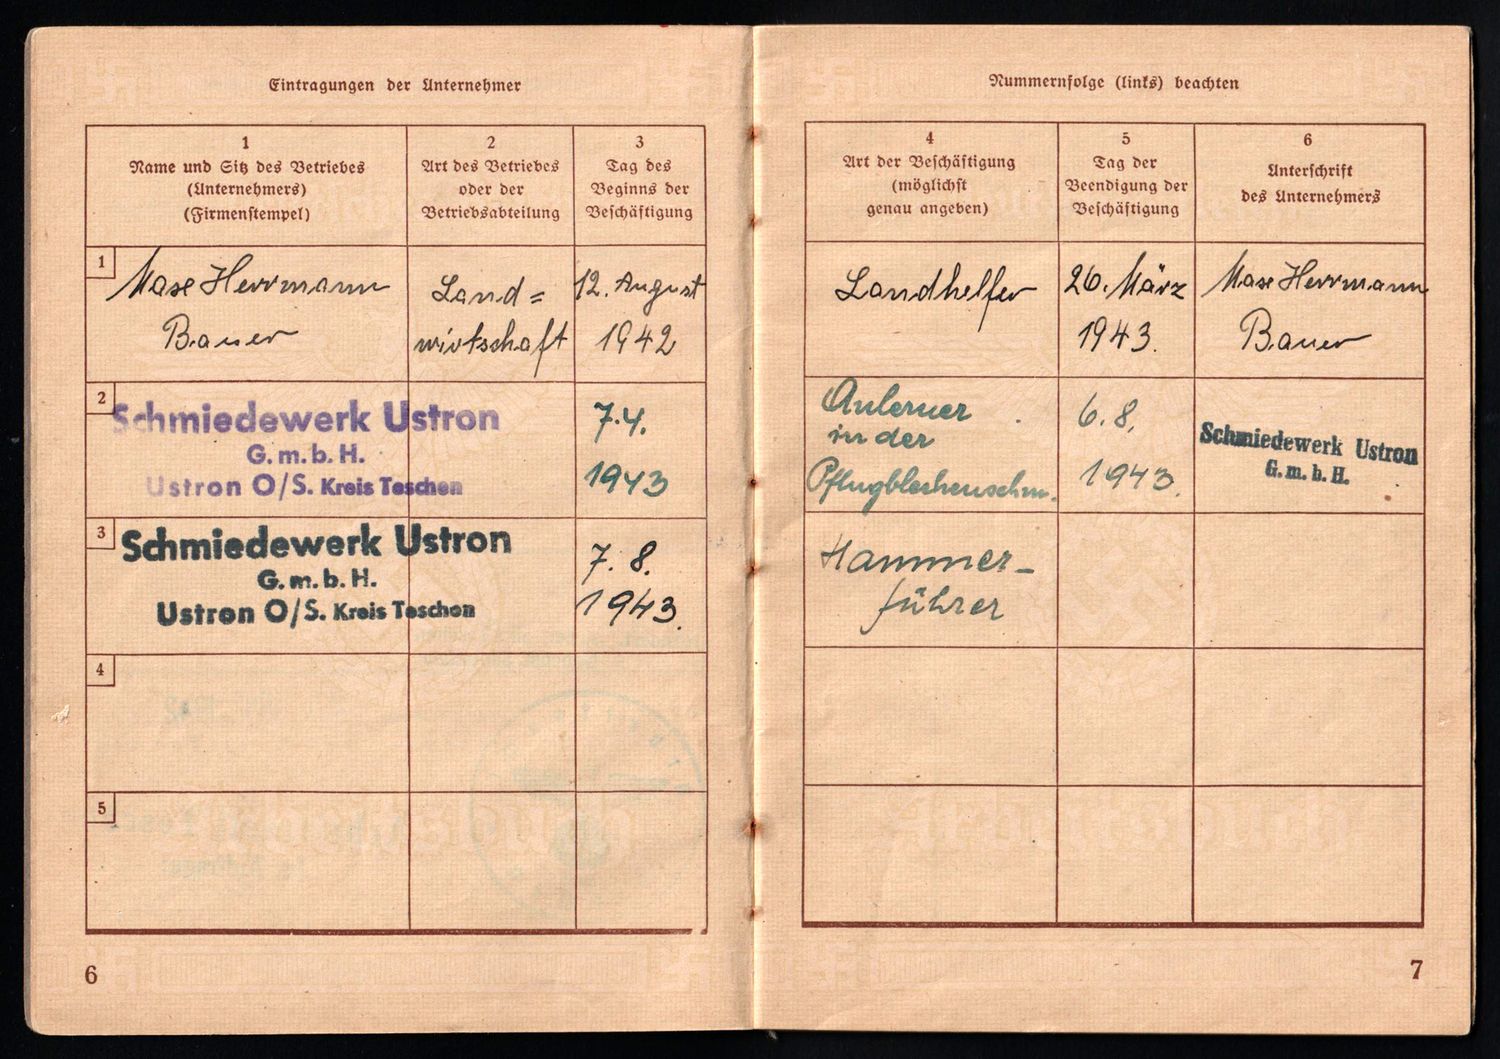 Eintragungen der Unternehmer
1
Name und Sitz des Betriebes
(Unternehmers)
(Firmenstempel)
2
Art des Betriebes
oder der
Betriebsabteilung
3
Tag des
Beginns der
Beschäftigung
1
Maxe Herrmann
Bauer
Land=
wirtschaft
12. August
1942
2
Schmiedewerk Ustron
G.m.b.H.
Ustron O/S. Kreis Teschen
7.4.
1943
3
Schmiedewerk Ustron
G.m.b.H.
Ustron O/S. Kreis Teschen
7.8.
1943.
4
5
6
Nummernfolge (links) beachten
4
Art der Beschäftigung
(möglichst
genau angeben)
5
Tag der
Beendigung der
Beschäftigung
6
Unterschrift
des Unternehmers
Landhelfer
26. März
1943.
Maxe Herrmann
Bauer
Anlerner
in der
6.8.
1943.
Schmiedewerk Ustron
G.m.b.H.
Hammer-
führer
Arbeitsbuch
7